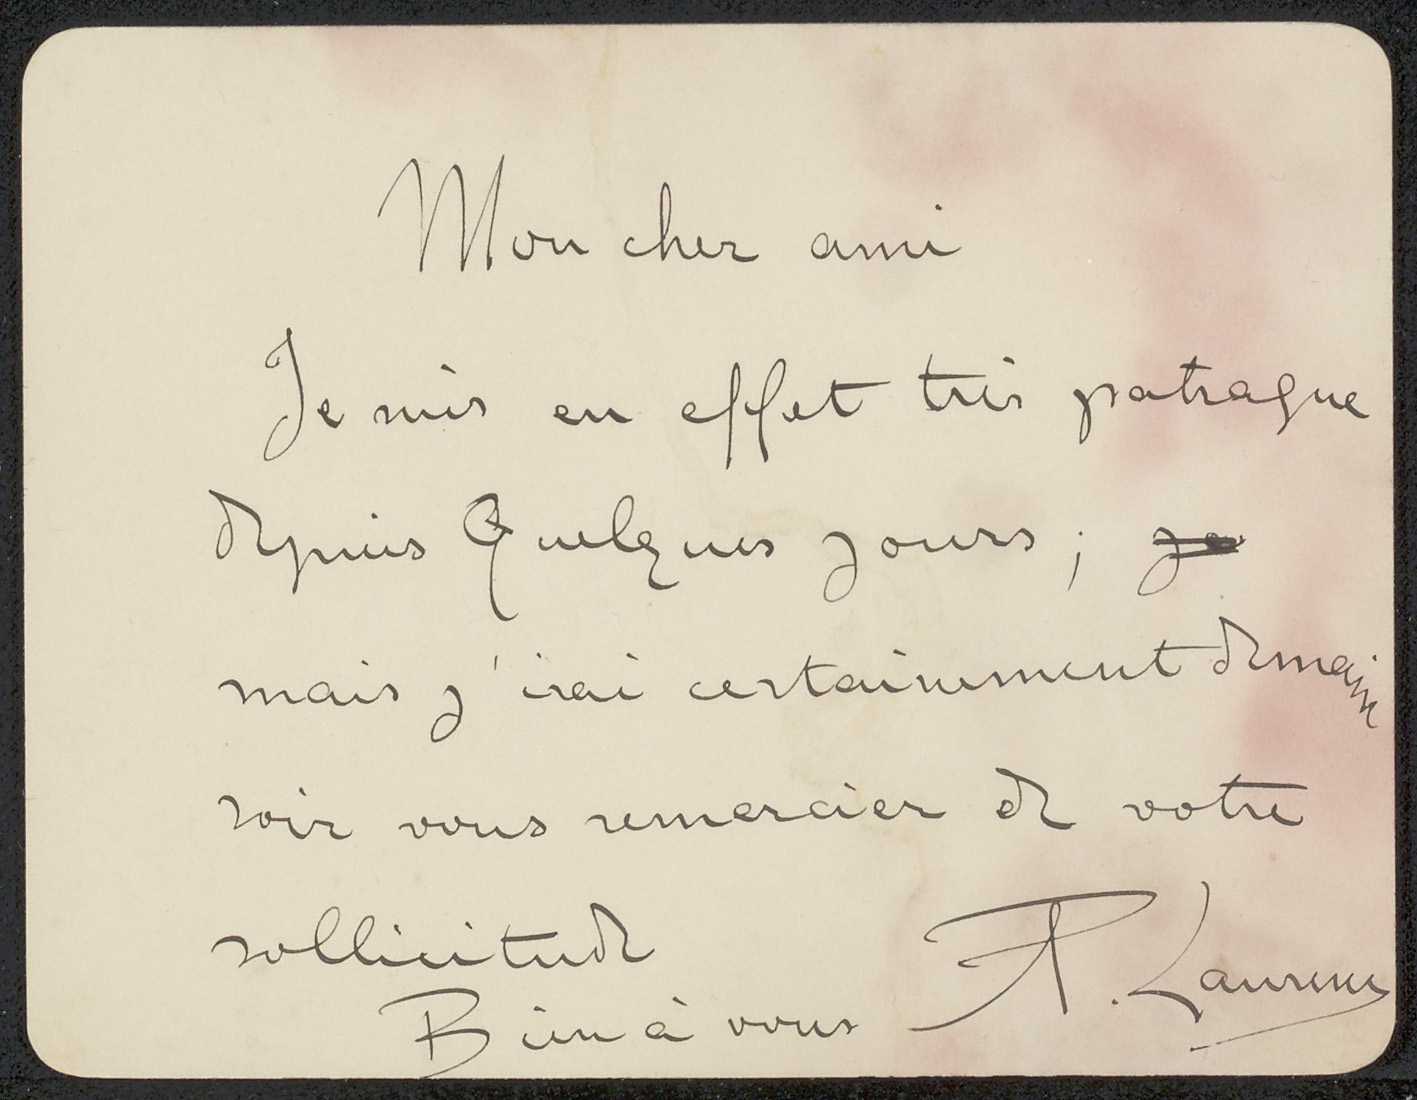 Mon cher ami
Je suis en effet très patraque
depuis Quelques jours ; je
mais j'irai certainement demain
soir vous remercier de votre
sollicitude
Bien à vous